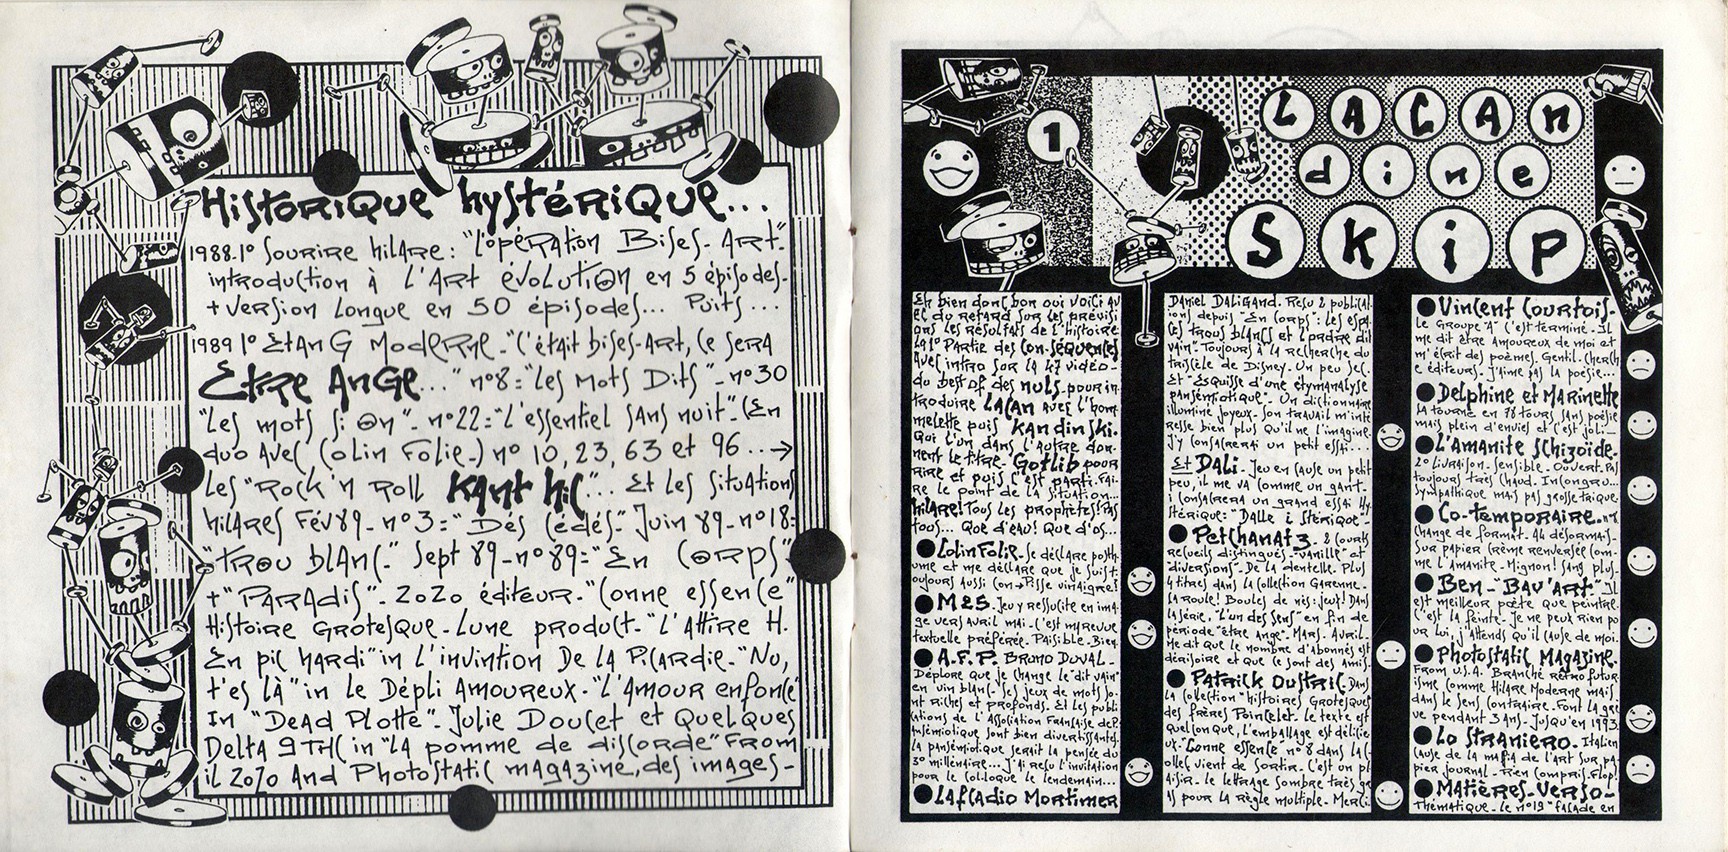 Historique hystérique...
1988-1° Sourire hilare: "L'opération Bises-Art"-
introduction à l'Art évolution en 5 épisodes-
+ version longue en 50 épisodes... Puits...
1989 1° Etan G Moderne-"C'était bises-Art, ce sera
Etre Ange..." n°8="Les Mots Dits"-n°30
"Les mots si on"-n°22="L'essentiel sans nuit"-(En
duo avec Colin Folie-) n° 10, 23, 63 et 96...→
Les "Rock'n Roll Kant hic"... Et les situations
hilares Fév 89-n°3="Dés cédés"-Juin 89-n°18=
"trou blanc"-Sept 89-n°89="En corps"
+"Paradis"-ZoZo éditeur-"Conne essence"
Histoire Grotesque-Lune product-"L'Attire H.
En pic hardi" in L'invintion De la Picardie-"Nu,
t'es là" in le Dépli Amoureux-"L'Amour enfoncé"
In "Dead Plotte"-Julie Doucet et Quelques
Delta 9 THC in "La pomme de discorde" From
il ZoZo And Photostatic magazine, des images-
1
LACAN
dine
SKiP
Eh bien donc bon oui voici av
ec du retard sur les prévisi
ons les résultats de l'histoire
la 1° Partie des Con-séquences
Avec intro sur la 47 vidéo-
du best of des nuls-pour in
troduire Lacan avec l'hom
melette puis Kandinski.
Qui l'un dans l'autre don-
nent le titre-Gotlib pour
rire et puis c'est parti-Fai-
re le point de la situation...
hilare! Tous les prophètes! Pas
tous... Que d'eau! Que d'os...
Colin Folie-Se déclare posth
ume et me déclare que je suis t
oujours aussi con→Pisse vinaigre!
M25-Jeu y ressucite en ima
ge vers avril mai-c'est ma revue
textuelle préférée. Paisible-Bien-
A.F.P. Bruno Duval-
Déplore que je change le "dit vain"
en vin blanc-Ses jeux de mots so-
nt riches et profonds. Et les publi
cations de l'Association Française de P.
ansémiotique sont bien divertissantes.
La pansémiotique serait la pensée du
3° millénaire... J'ai reçu l'invitation
pour le colloque le lendemain...
Lafcadio Mortimer
Daniel Daligand-Resu 2 publicat-
ions depuis "En corps": Les espa
ces trous blancs et l'ordre dit
vain"-Toujours à la recherche du
trisèle de Disney. Un peu sec-
Et "Esquisse d'une étymanalyse
pansémiotique"-Un dictionnaire
illuminé joyeux-Son travail m'inté
resse bien plus qu'il ne l'imagine-
J'y consacrerai un petit essai...
Et Dali-Jeu en cause un petit
peu, il me va comme un gant-
i consacrera un grand essai Hy
stérique: "Dalle i stérique"-
Petchanatz-2 courts
recueils distingués-"vanille" et
diversions"-De la dentelle. Plus
4 titres dans la collection Garenne-
La roule! Boules de nès: jeux! Dans
la série, "L'un des sens" en fin de
période "être ange"-Mars-Avril-
Me dit que le nombre d'abonnés est
dérisoire et que ce sont des Amis-
Patrick Oustric-Dans
la collection "histoires Grotesques
des frères Poincelet-Le texte est
quelconque, l'emballage est délicie
ux-"Conne essence n°8 dans la c-
ollec vient de sortir-C'est un pl
aisir-Le lettrage sombre très ga
is pour la règle multiple-Merci-
Vincent Courtois-
Le Groupe "A" c'est terminé-Il
me dit être Amoureux de moi et
m'écrit des poèmes. Gentil-Cherch
e éditeurs-J'aime pas la poésie...
Delphine et Marinette
La tourne en 78 tours sans poésie
mais plein d'envies et c'est joli...
L'Amanite Schizoïde-
2° Livraison-Sensible-Ouvert. Pas
toujours très chaud. Incongru...
Sympathique mais pas grosse trique-
Co-temporaire-
Change de format-A4 désormais-
Sur papier crème renversée com-
me L'Amanite-Mignon! Sans plus-
Ben-"Bav'Art"-Il
est meilleur poète que peintre-
C'est la feinte-Je ne peux rien po
ur lui, j'attends qu'il cause de moi-
Photostatic Magazine-
From U.S.A. Branché rétro futur-
isme comme Hilare Moderne mais
dans le sens contraire-Font la grè
ve pendant 3 ans-Jusqu'en 1993-
Lo Straniero-Italien
Cause de la mafia de l'Art sur pa-
pier journal-Rien compris-Flop!
Matières-Verso-
Thématique-Le n°19 "façade en